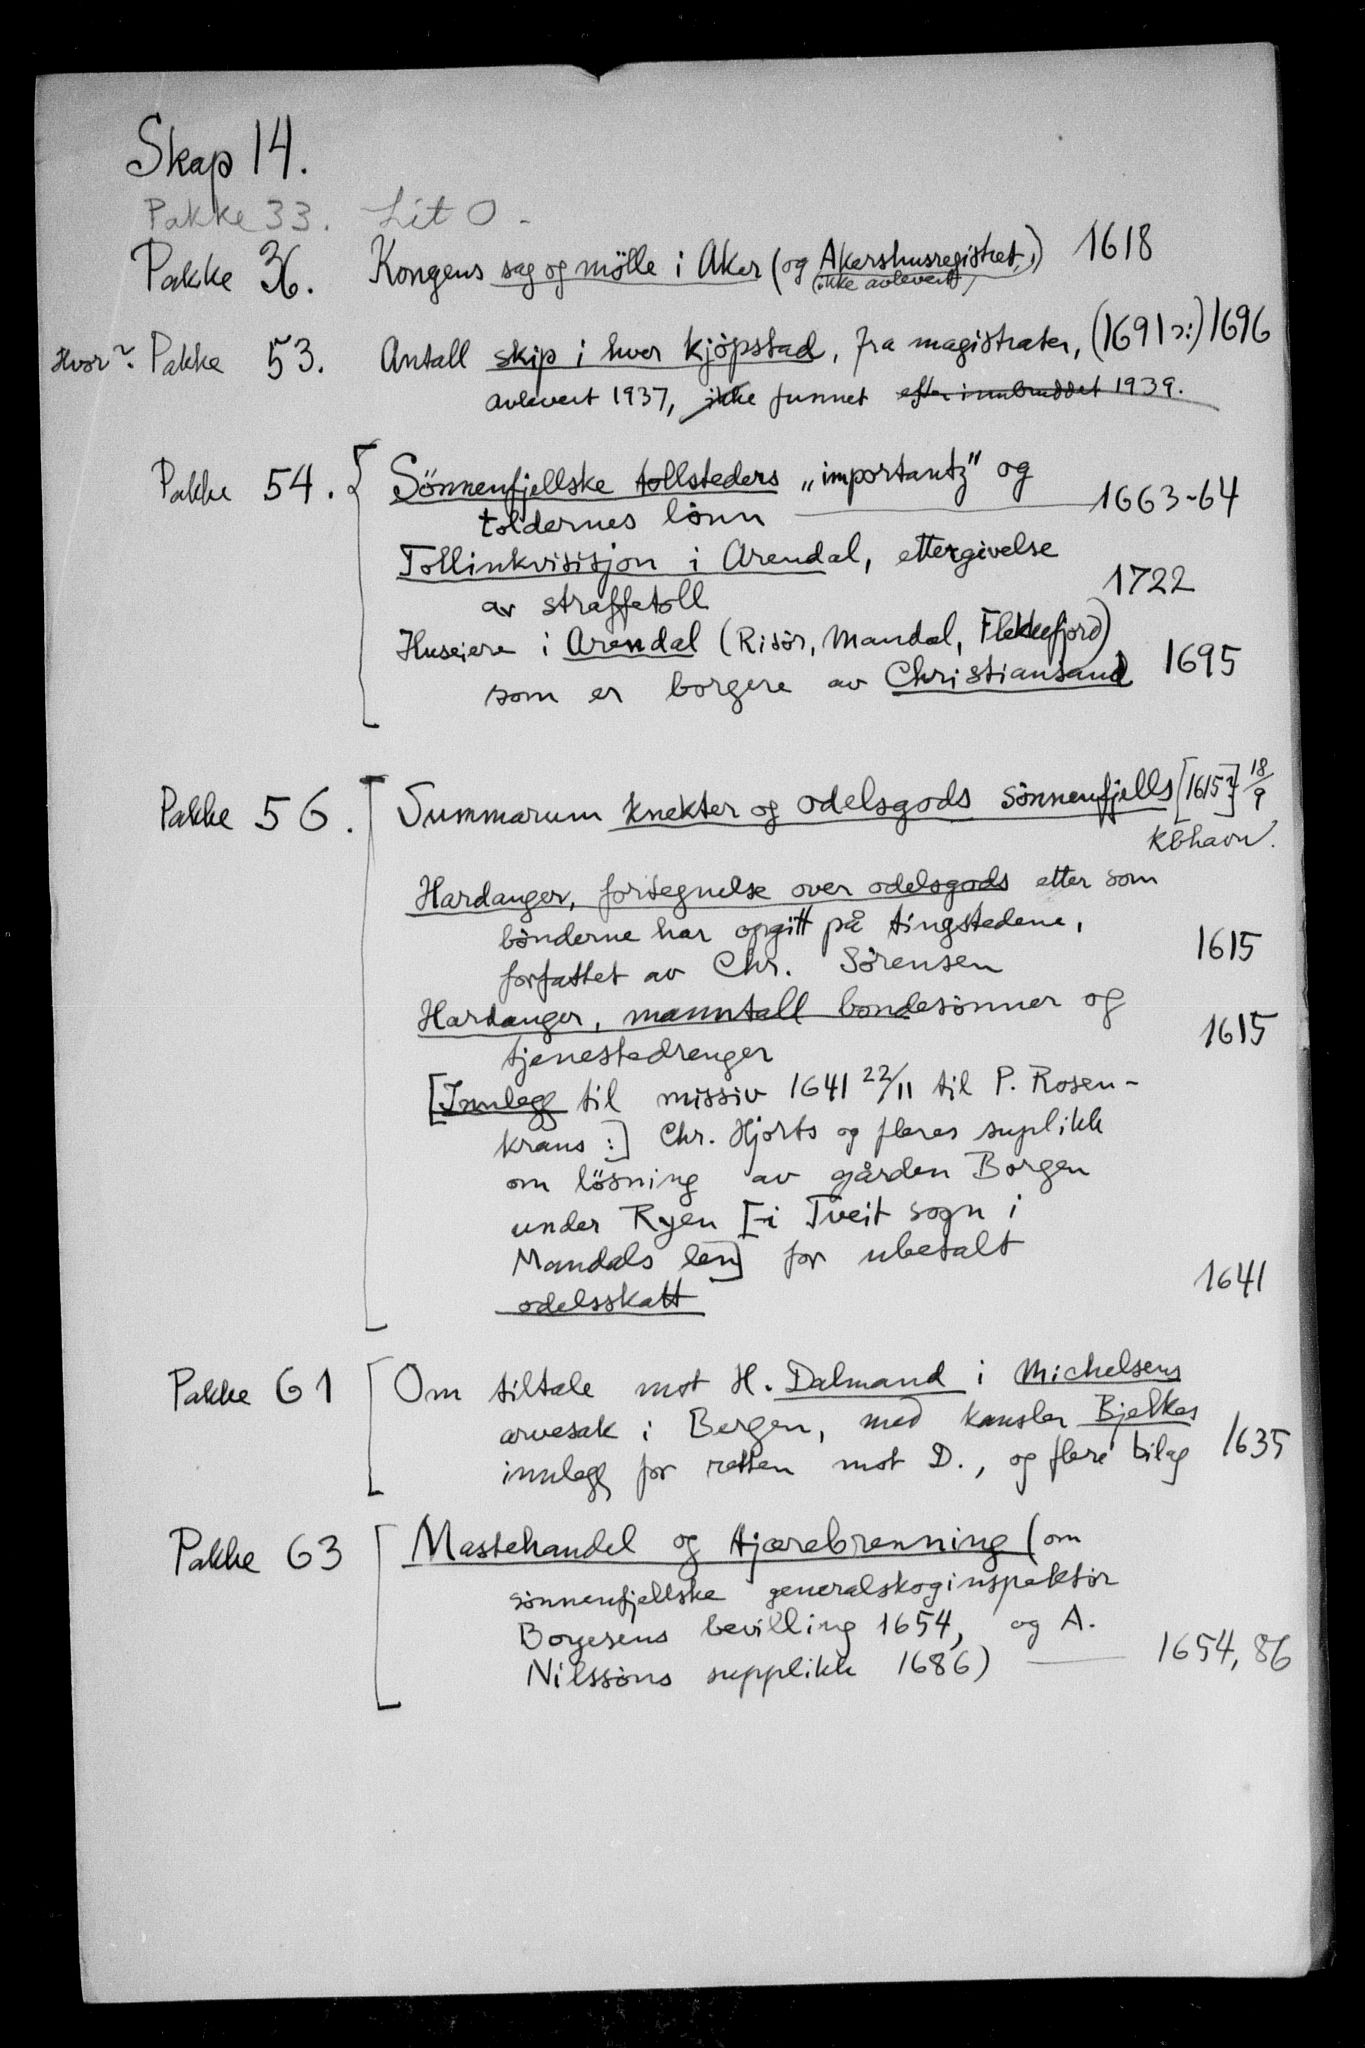 Skap 14.
Pakke 33. Lit O -
Pakke 36. Kongens sag og mölle i Aker (og Akershusregistret,) 1618
(ikke avlevert)
Hvor? Pakke 53. Antall skip i hver kjöpstad, fra magistrater, (1691 ɔ:) 1696
avlevert 1937, ikke funnet efter innbruddet 1939.
Pakke 54. Sönnenfjellske tollsteders „importantz" og
toldernes lönn 1663-64
Tollinkvisisjon i Arendal, ettergivelse
av straffetoll 1722
Huseiere i Arendal (Risör, Mandal, Flekkefjord)
som er borgere av Christiansand 1695
Pakke 56. Summarum knekter og odelsgods sönnenfjells [1615?] 18/9
Kbhavn.
Hardanger, fortegnelse over odelsgods etter som
bönderne har opgitt på tingstedene,
forfattet av Chr. Sörensen 1615
Hardanger, manntall bondesönner og
tjenestedrenger 1615
[Innlegg til missiv 1641 22/11 til P. Rosen-
krans :] Chr. Hjorts og fleres suplikk
om lösning av gården Borgen
under Ryen [i Tveit sogn i
Mandals len] for ubetalt
odelsskatt 1641
Pakke 61 Om tiltale mot H. Dalmand i Michelsens
arvesak i Bergen, med kansler Bjelkes
innlegg for retten mot D., og flere bilag 1635
Pakke 63 Mastehandel og tjærebrenning (om
sönnenfjellske generalskoginspektör
Boyesens bevilling 1654, og A.
Nilssöns supplikk 1686) 1654, 86